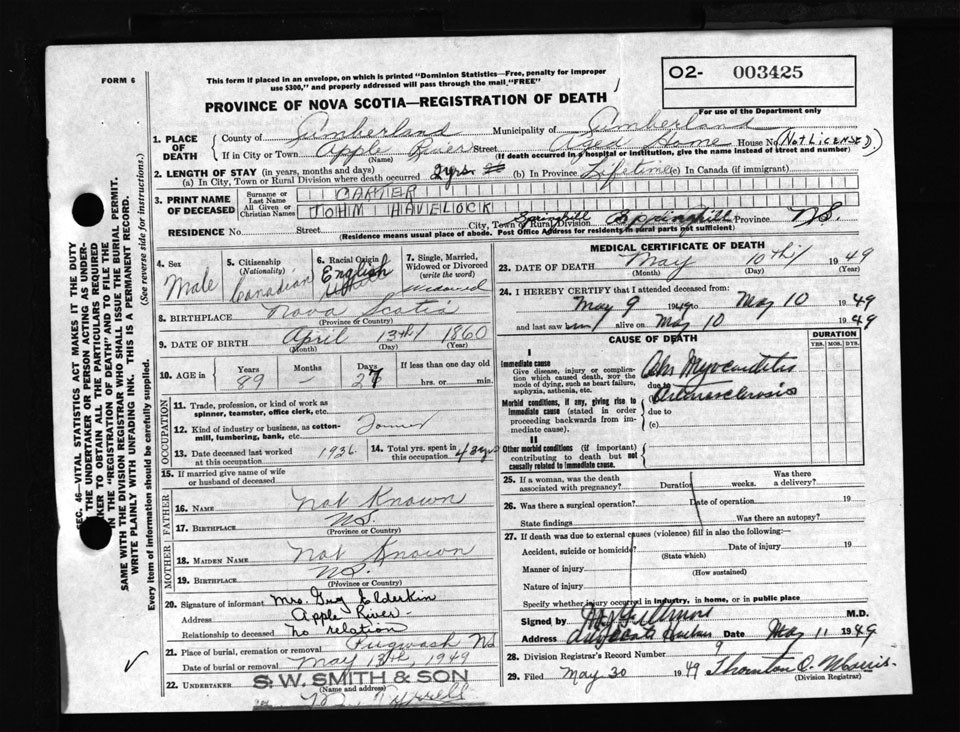 FORM 6
This form if placed in an envelope, on which is printed "Dominion Statistics—Free, penalty for improper
use $300," and properly addressed will pass through the mail "FREE"
02- 003425
For use of the Department only
PROVINCE OF NOVA SCOTIA—REGISTRATION OF DEATH
1. PLACE OF DEATH
County of Cumberland Municipality of Cumberland
If in City or Town Apple River Street Aged Home House No. (Not Licensed)
(Name) (If death occurred in a hospital or institution, give the name instead of street and number)
2. LENGTH OF STAY (in years, months and days)
(a) In City, Town or Rural Division where death occurred 2 yrs (b) In Province Lifetime (c) In Canada (if immigrant)
3. PRINT NAME OF DECEASED
Surname or Last Name CARTER
All Given or Christian Names JOHN HAVELOCK
RESIDENCE No. Street City, Town or Rural Division Springhill Province N.S.
(Residence means usual place of abode. Post Office Address for residents in rural parts not sufficient)
4. Sex Male
5. Citizenship (Nationality) Canadian
6. Racial Origin English
7. Single, Married, Widowed or Divorced (write the word) Widowed
8. BIRTHPLACE Nova Scotia
(Province or Country)
9. DATE OF BIRTH April 13th 1860
(Month) (Day) (Year)
10. AGE in Years 89 Months – Days 27 If less than one day old
hrs. or min.
OCCUPATION
11. Trade, profession, or kind of work as
spinner, teamster, office clerk, etc.
12. Kind of industry or business, as cotton-
mill, lumbering, bank, etc.
13. Date deceased last worked
at this occupation 1936
14. Total yrs. spent in
this occupation
15. If married give name of wife
or husband of deceased
FATHER
16. NAME Not Known
17. BIRTHPLACE N.S.
(Province or Country)
MOTHER
18. MAIDEN NAME Not Known
19. BIRTHPLACE N.S.
(Province or Country)
20. Signature of informant Mrs. Guy Elderkin
Address Apple River
Relationship to deceased no relation
21. Place of burial, cremation or removal Pugwash N.S.
Date of burial or removal May 13th, 1949
22. UNDERTAKER S. W. SMITH & SON
(Name and address)
MEDICAL CERTIFICATE OF DEATH
23. DATE OF DEATH May 10th 1949
(Month) (Day)
24. I HEREBY CERTIFY that I attended deceased from:
May 9 1949 to May 10 1949
and last saw alive on May 10 1949
CAUSE OF DEATH
DURATION
YRS. MOS. DYS.
I
Immediate cause
Give disease, injury or complica-
tion which caused death, not the
mode of dying, such as heart failure,
asphyxia, asthenia, etc.
Chr Myocarditis
due to
Arteriosclerosis
Morbid conditions, if any, giving rise to
immediate cause (stated in order
proceeding backwards from im-
mediate cause).
due to
(c)
II
Other morbid conditions (if important)
contributing to death but not
causally related to immediate cause.
25. If a woman, was the death
associated with pregnancy? Duration weeks. Was there
a delivery?
26. Was there a surgical operation? Date of operation 19
State findings Was there an autopsy?
27. If death was due to external causes (violence) fill in also the following:—
Accident, suicide or homicide? Date of injury 19
(State which)
Manner of injury
(How sustained)
Nature of injury
Specify whether injury occurred in industry, in home, or in public place
Signed by M.D.
Address Advocate Harbour Date May 11 1949
28. Division Registrar's Record Number 9
29. Filed May 30 1949 Thornton C. Morris
(Division Registrar)
SEC. 46—VITAL STATISTICS ACT MAKES IT THE DUTY
OF THE UNDERTAKER OR PERSON ACTING AS UNDER-
TAKER TO OBTAIN ALL THE PARTICULARS REQUIRED
IN THE "REGISTRATION OF DEATH" AND TO FILE THE
SAME WITH THE DIVISION REGISTRAR WHO SHALL ISSUE THE BURIAL PERMIT.
WRITE PLAINLY WITH UNFADING INK. THIS IS A PERMANENT RECORD.
Every item of information should be carefully supplied. (See reverse side for instructions.)